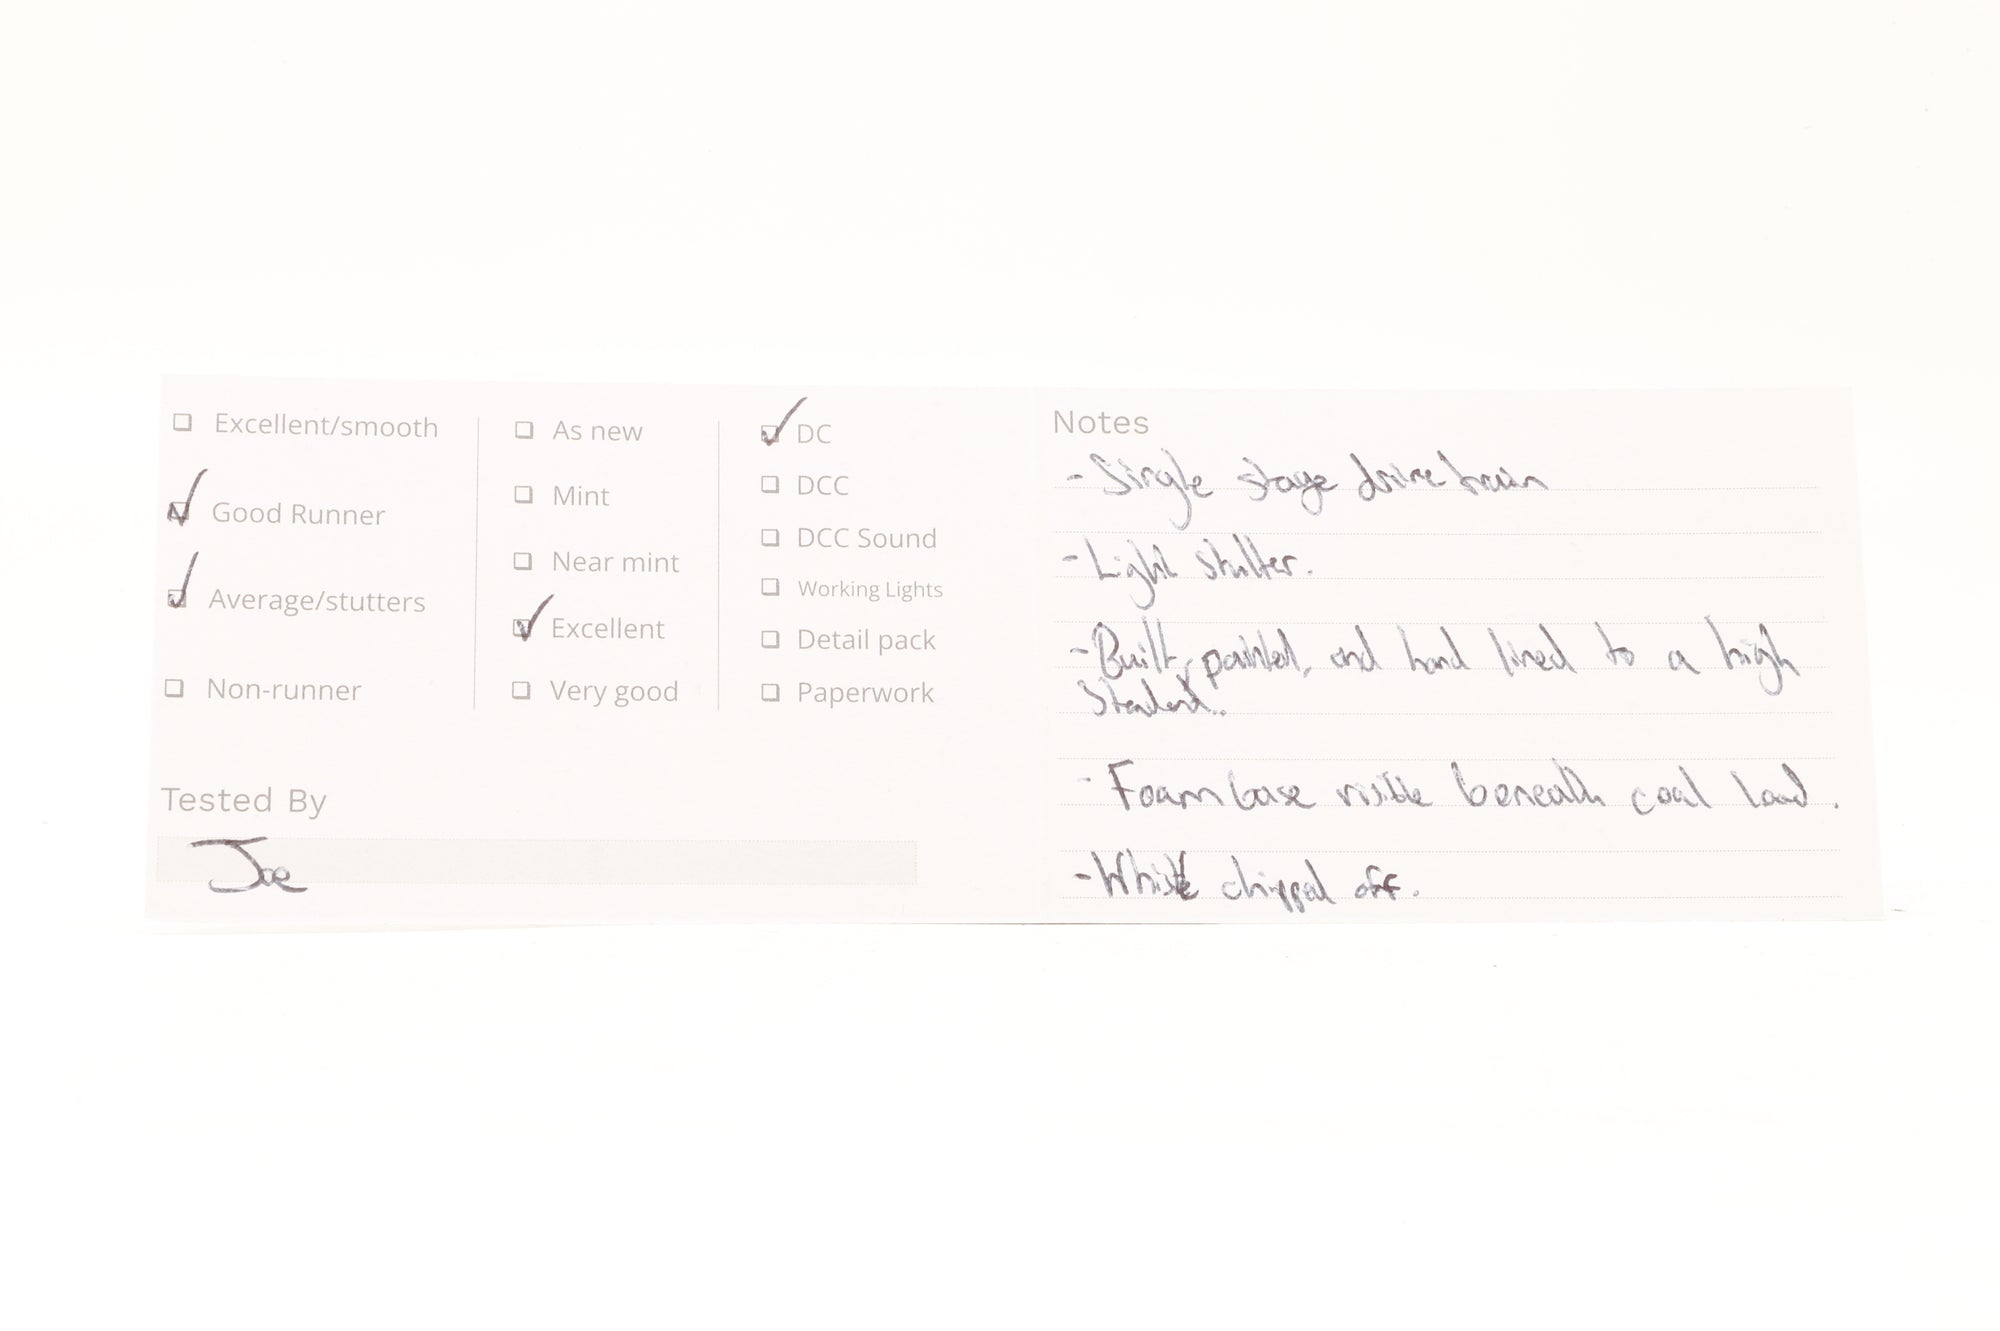 Excellent/smooth
Good Runner
Average/stutters
Non-runner
As new
Mint
Near mint
Excellent
Very good
DC
DCC
DCC Sound
Working Lights
Detail pack
Paperwork
Tested By
Joe
Notes
- Single stage drivetrain
- Light stutter.
- Built, painted, and hand lined to a high
standard.
- Foam base visible beneath coal load.
- Whistle chipped off.